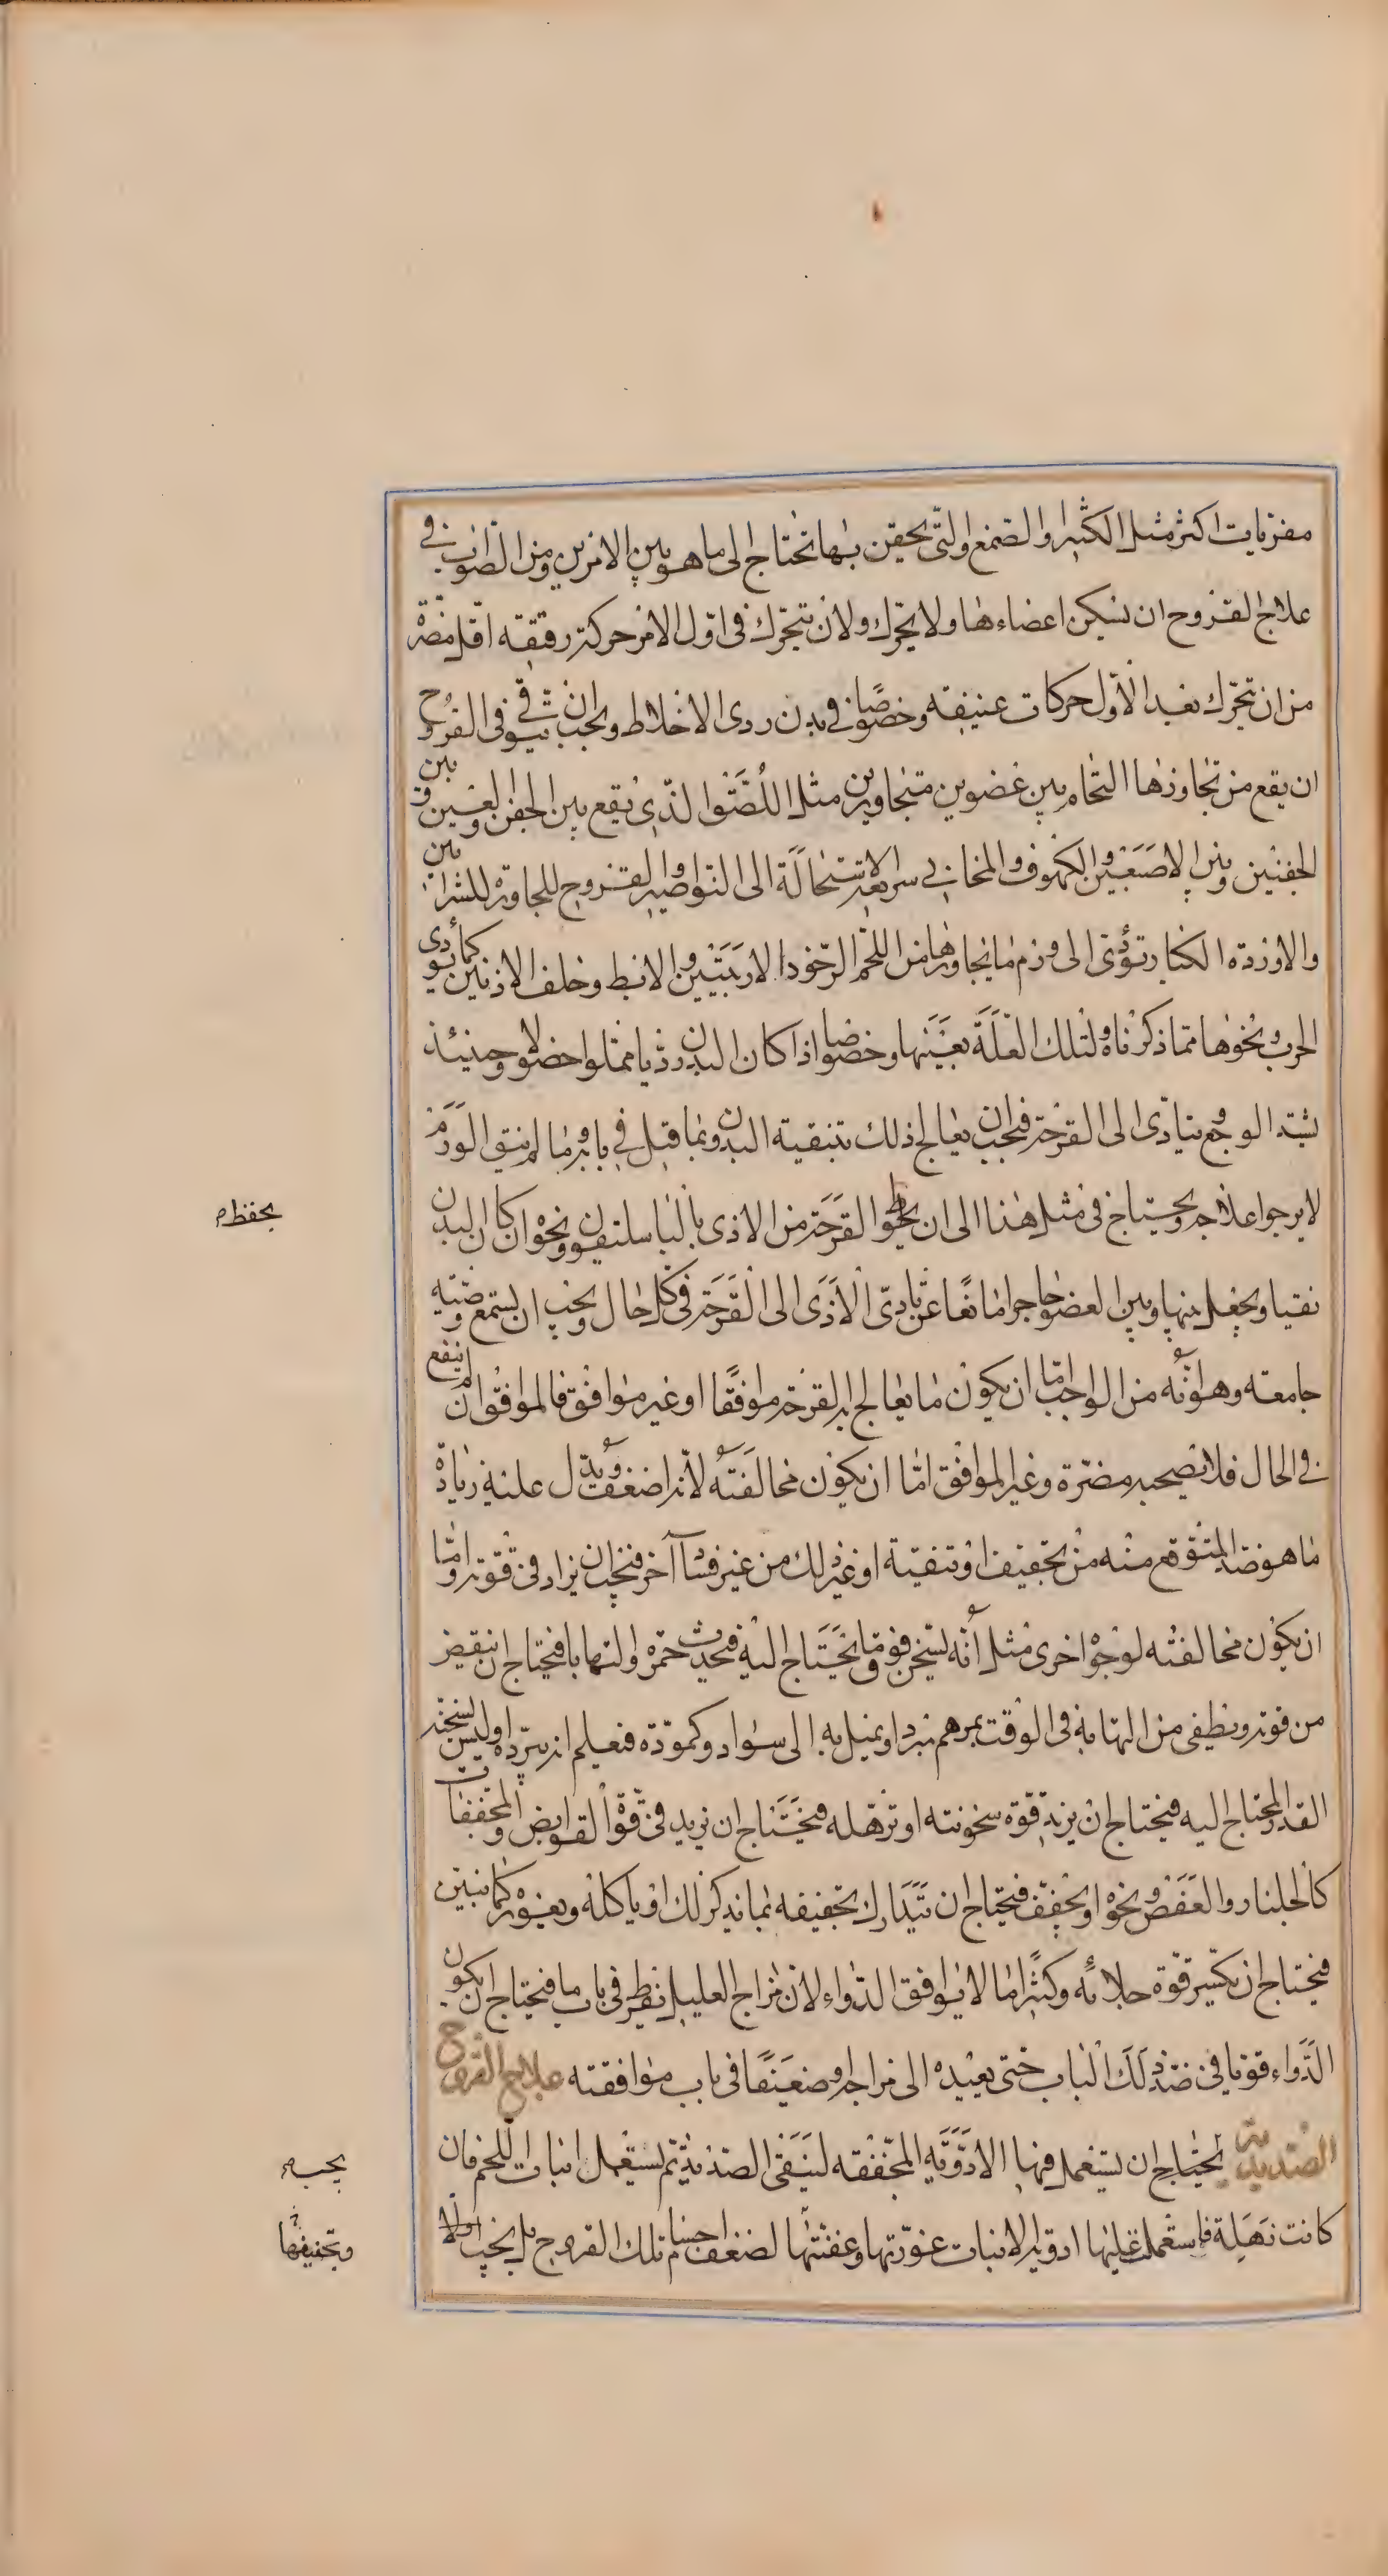 مغريات اكثر مثل الكثيرا والصمغ والتى يحقن بها تحتاج الى ما هو بين الامرين ومن الصواب فى
علاج القروح ان تسكن اعضاءها ولا تحرك ولان تتحرك فى اول الامر حركة رقيقه اقل مضرة
من ان تتحرك بعد الاول حركات عنيفه وخصوصا فى بدن ردى الاخلاط ويجب ان يتوقى فى القروح
ان يقع من تجاوزها التحام بين عضوين متجاورين مثل اللتصتوا الذى يقع بين الجفن والعين وبين
الجفنين وبين الاصبعين والكهوف والمخابى سريعة الاستحالة الى النواصير والقروح المجاورة للشرايين
والاوردة الكبار تؤدى الى ورم ما يجاورها من اللحم الرخو كالاربيتين والابط وخلف الاذنين كما تؤدى
الجرب ونحوها مما ذكرناه ولتلك العلة بعينها وخصوصا اذا كان البدن رديا ممتلوا فضولا وحينئذ
يشتد الوجع ويتادى الى القرحة فيجب ان يعالج ذلك بتنقية البدن وبما قيل فى بابه وما لم ينق الورم
لا يرجوا علاجه ويحتاج فى مثل هذا الى ان يحوطوا القرحة من الاذى بالباسليقون ونحوه ان كان البدن
نقيا ويجعل بينها وبين العضو حاجزا مانعا عن تادى الاذى الى القرحة فى كل حال ويجب ان يستمع وصيه
جامعه وهو انه من الواجب اما ان يكون ما يعالج به القرحة موافقا او غير موافق فالموافق ان لم ينفع
فى الحال فلا تصحبه مضرة وغير الموافق اما ان يكون مخالفته لانه اضعف قوة ويدل عليه زيادة
ما هو ضد المتوقع منه من تجفيف او تنقية او غير ذلك من غير فساد آخر فيجب ان يزاد فى قوته واما
ان يكون مخالفته لوجوه اخرى مثل انه يسخن فوق ما يحتاج اليه فيحدث حمرة والتهابا فيحتاج ان ينقص
من قوته ويطفى من التهابه فى الوقت بمرهم مبرد او يميل به الى سواد وكمودة فيعلم انه يبرده وليس يسخنه
القدر المحتاج اليه فيحتاج ان يزيد قوة سخونته او ترهله فيحتاج ان تزيد فى قوة القوابض والمجففات
كالجلنار والعفص ونحوه او يجفف فيحتاج ان يتدارك تجفيفه بما يذكر لك او ياكله ويغوره كما نبين
فيحتاج ان يكسر قوة جلائه وكثيرا ما لا يوافق الدواء لان مزاج العليل يفرط فى باب ما فيحتاج ان يكون
الدواء قويا فى ضد ذلك الباب حتى يعيده الى مزاجه وضعيفا فى باب موافقته علاج القروح
الصديدية يحتاج ان يستعمل فيها الادويه المجففه لينقى الصديد ثم يستعمل انبات اللحم فان
كانت رهلة فاستعملت عليها ادوية الانبات عفنتها وعفنتها لضعف اجسام تلك القروح بل يجب اولا
يحفظ
يجب
وتجفيفها